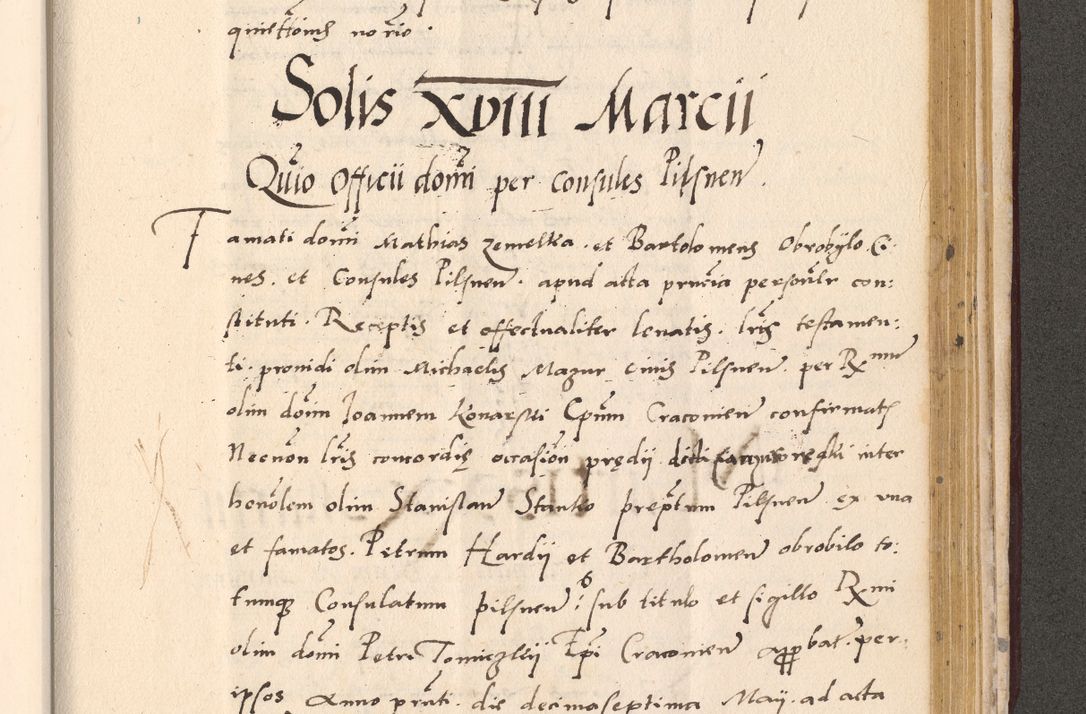 quiettōnis no rio.
Solis XVIII Marcii
Quīo Officii domī per Consules Pilsnen̄.
Famati domī Mathias Zemelka. et Bartolomeus Obrobÿlo. Ci-
nes. et Consules Pilsnen̄. apud acta pn̄cia person̄lr con:
stituti. Receptis et effectualiter leuatis. lr̄is testamen:
ti. prouidi olim Michaelis Mazur Ciuis Pilsnen̄. per Rxmum
olim domī Joannem Konarski Ep̄um Cracouien̄ confirmatis
Necnon lr̄is concordię occasiōn prędii dicti inter
honōlem olim Stanislaum Stanko prep̄tum Pilsnen̄. ex vna
et famatos. Petrum Hardÿ et Bartholomeum obrobilo to:
tumqȝ Consulatum pilsnen̄: 6 sub titulo et sigillo Rxmi
olim domī Petri Tomiczkÿ Ep̄i Cracouien̄ app̄bat. per-
ipsos Anno pn̄ti. die decimaseptima Maÿ. ad acta